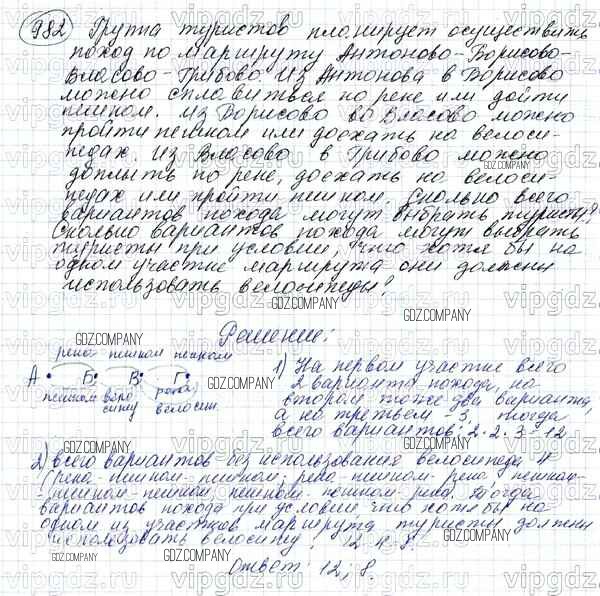 982 Группа туристов планирует осуществить
поход по маршруту Антоново-Борисово-
Власово-Грибово. Из Антонова в Борисово
можно сплавиться по реке или дойти
пешком. Из Борисово во Власово можно
пройти пешком или доехать на велоси-
педах. Из Власово в Грибово можно
доплыть по реке, доехать на велоси-
педах или пройти пешком. Сколько всего
вариантов похода могут выбрать туристы?
Сколько вариантов похода могут выбрать
туристы при условии, что хотя бы на
одном участке маршрута они должны
использовать велосипеды?
Решение:
река пешком пешком
А Б В Г
пешком река
велосип.
1) На первом участке всего
2 варианта похода, на
втором тоже два варианта,
а на третьем - 3, тогда
всего вариантов: 2·2·3=12
2) всего вариантов без использования велосипеда 4
(река-пешком-пешком; река-пешком-река; пешком-
-пешком-пешком; пешком-пешком-река. Тогда
вариантов похода при условии, что хотя бы на
одном из участков маршрута туристы должны
использовать велосипед: 12-4=8.
Ответ: 12; 8.
vipgdz.ru
GDZ.COMPANY